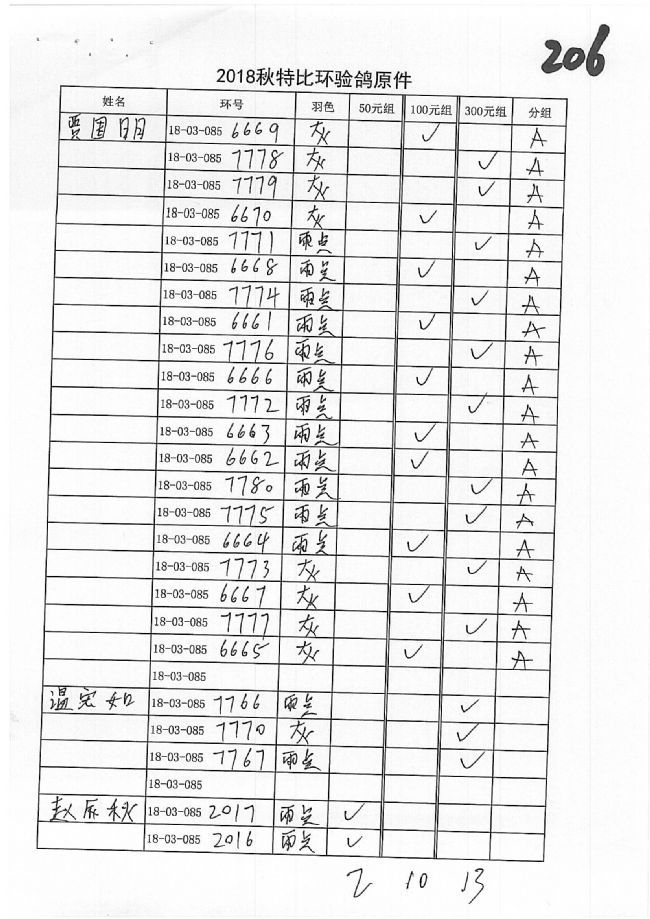 206
2018秋特比环验鸽原件
姓名 环号 羽色 50元组 100元组 300元组 分组
贾国明 18-03-085 6669 灰 ✓ A
18-03-085 7778 灰 ✓ A
18-03-085 7779 灰 ✓ A
18-03-085 6670 灰 ✓ A
18-03-085 7771 雨点 ✓ A
18-03-085 6668 雨点 ✓ A
18-03-085 7774 雨点 ✓ A
18-03-085 6661 雨点 ✓ A
18-03-085 7776 雨点 ✓ A
18-03-085 6666 雨点 ✓ A
18-03-085 7772 雨点 ✓ A
18-03-085 6663 雨点 ✓ A
18-03-085 6662 雨点 ✓ A
18-03-085 7780 雨点 ✓ A
18-03-085 7775 雨点 ✓ A
18-03-085 6664 雨点 ✓ A
18-03-085 7773 灰 ✓ A
18-03-085 6667 灰 ✓ A
18-03-085 7777 灰 ✓ A
18-03-085 6665 灰 ✓ A
18-03-085
温宏如 18-03-085 7766 雨点 ✓
18-03-085 7770 灰 ✓
18-03-085 7767 雨点 ✓
18-03-085
赵辰秋 18-03-085 2017 雨点 ✓
18-03-085 2016 雨点 ✓
2 10 13